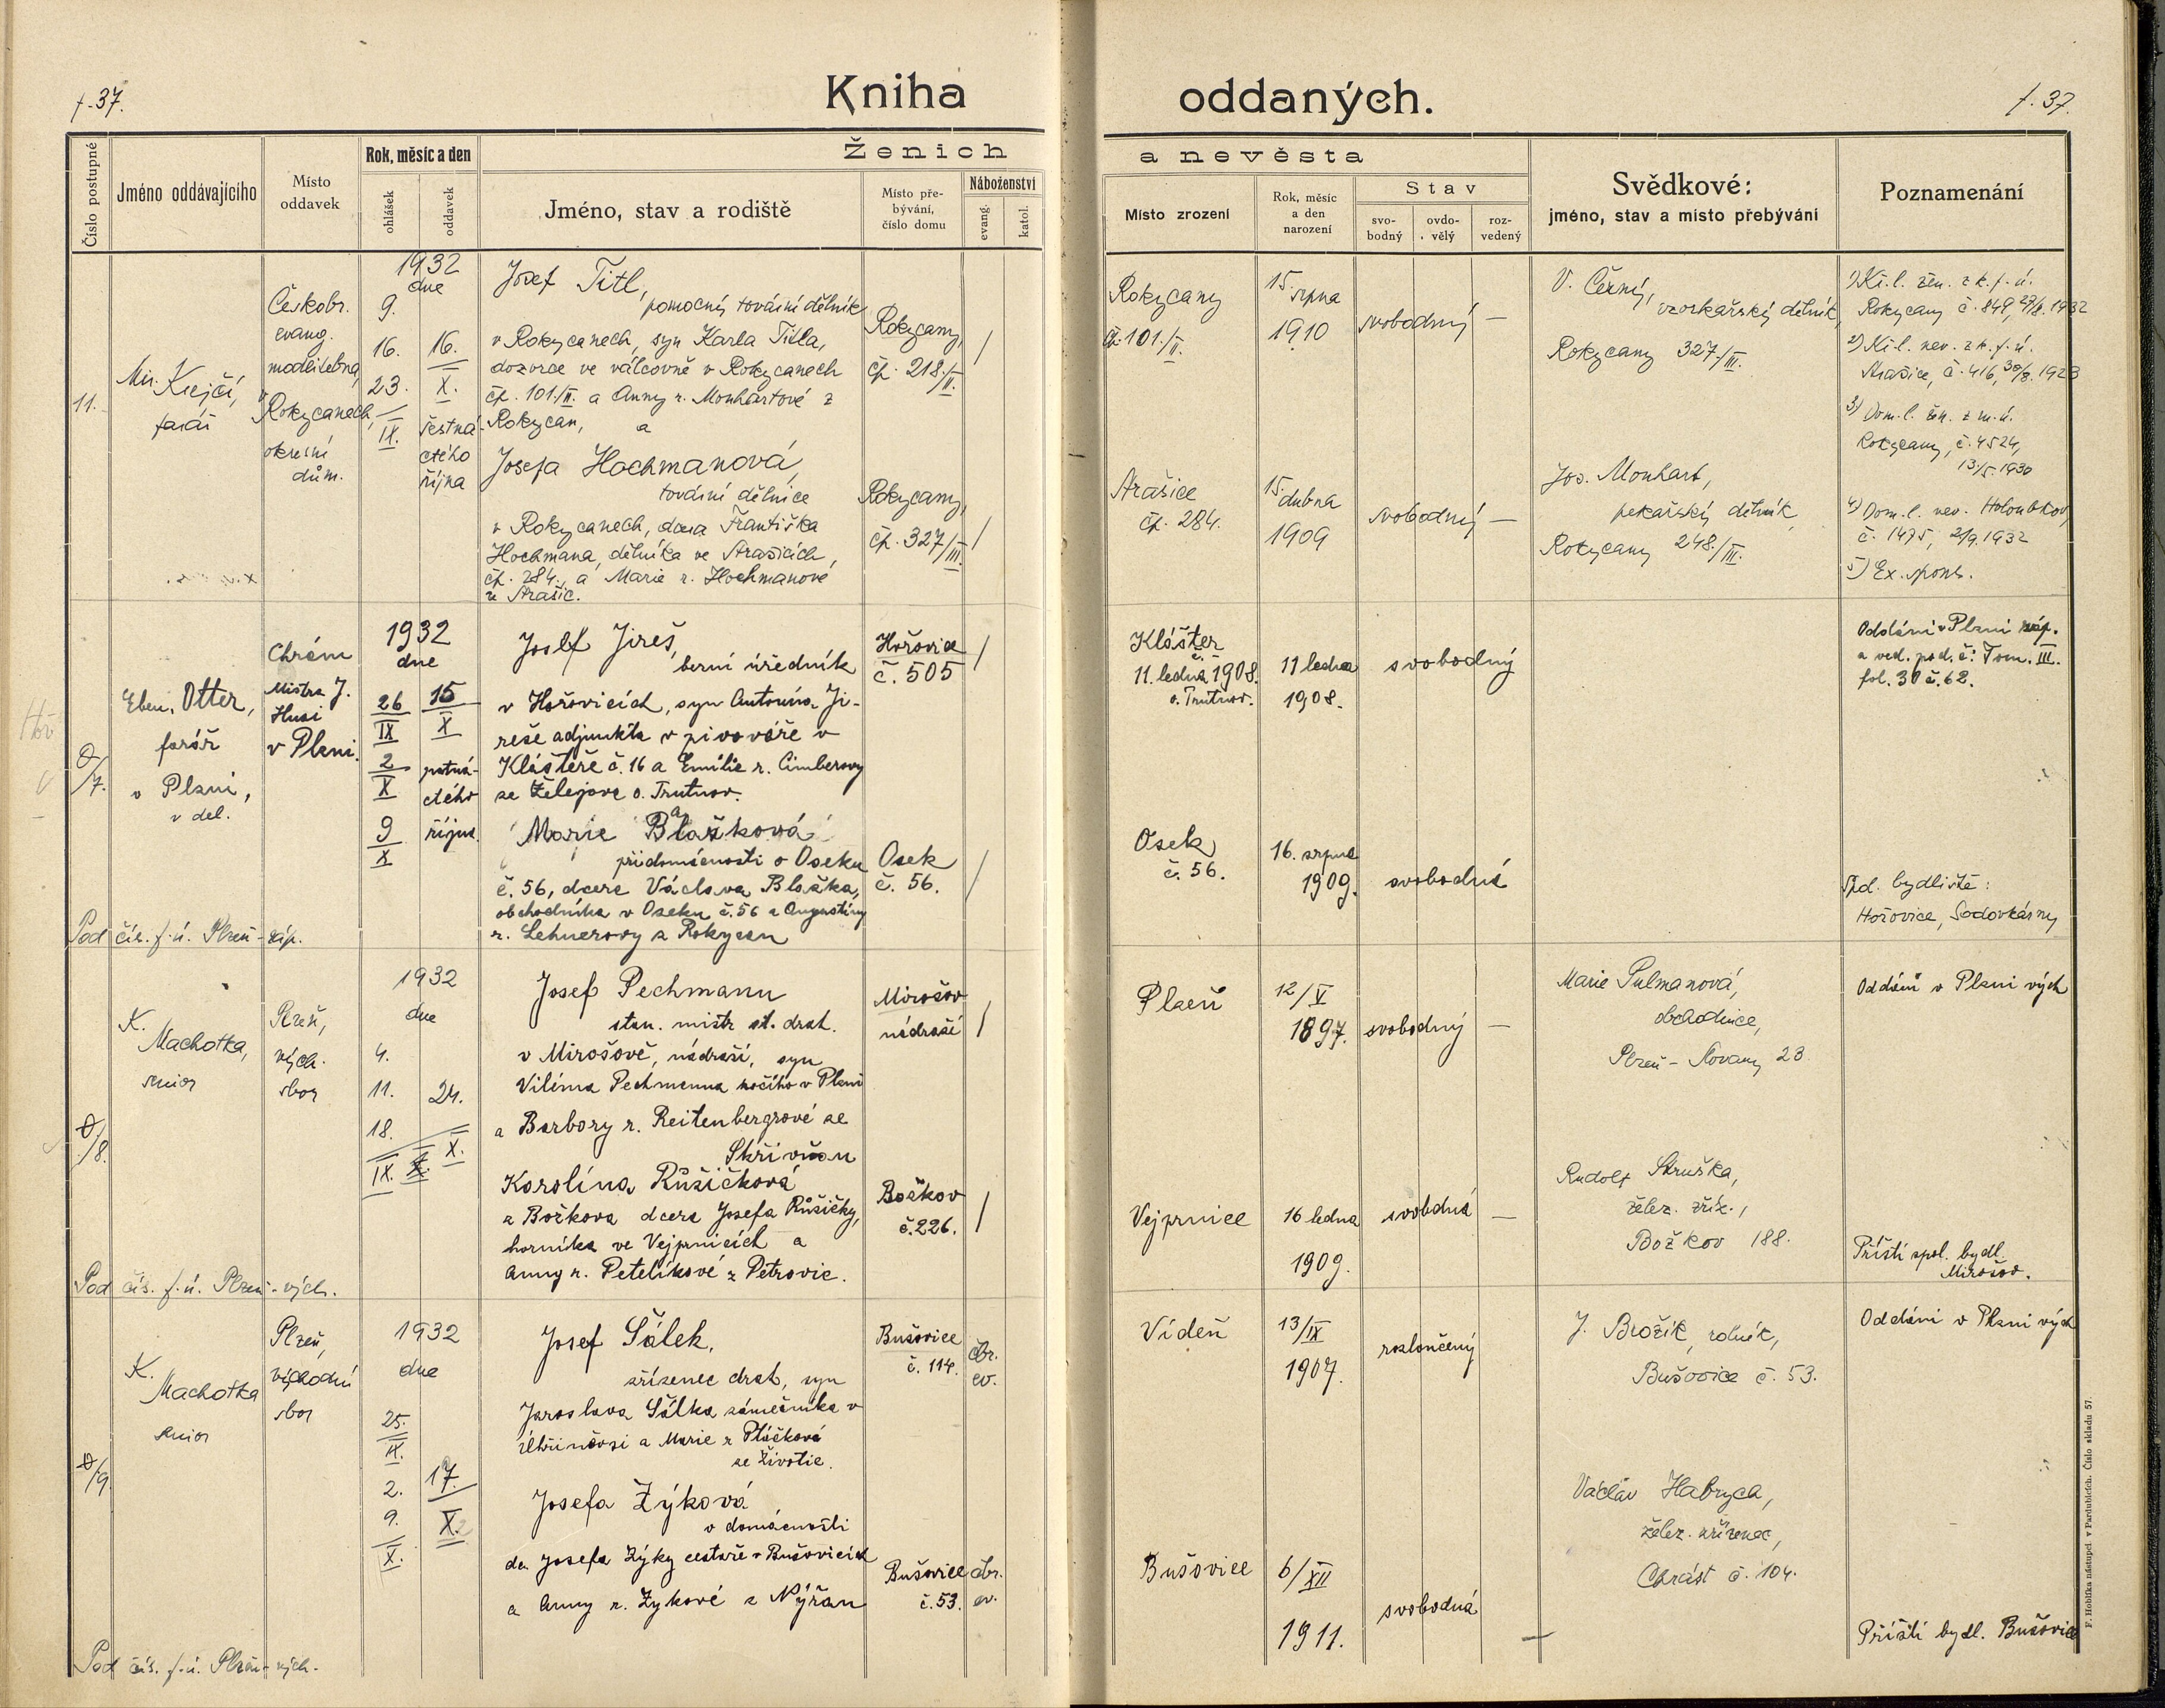 f. 37.
Kniha oddaných.
f. 37.
Číslo postupné
Jméno oddávajícího
Místo oddavek
Rok, měsíc a den
ohlášek
oddavek
Ženich
Jméno, stav a rodiště
Místo pře-
bývání,
číslo domu
Náboženství
evang.
katol.
a nevěsta
Místo zrození
Rok, měsíc
a den
narození
Stav
svo-
bodný
ovdo-
vělý
roz-
vedený
Svědkové:
jméno, stav a místo přebývání
Poznamenání
11.
Mir. Krejčí,
farář
Českobr.
evang.
modlitebna
v
Rokycanech,
okresní
dům.
1932
dne
9.
16.
23.
IX.
16.
X.
šestná-
ctého
října
Josef Titl,
pomocný tovární dělník
v Rokycanech, syn Karla Titla,
dozorce ve válcovně v Rokycanech
čp. 101./II. a Anny r. Monhartové z
Rokycan, a
Josefa Hochmanová,
tovární dělnice
v Rokycanech, dcera Františka
Hochmana, dělníka ve Strašicích,
čp. 284., a Marie r. Hochmanové
ze Strašic.
Rokycany,
čp. 218./II.
Rokycany,
čp. 327/III.
Rokycany
čp. 101./II.
15. srpna
1910
svobodný —
Strašice
čp. 284.
15. dubna
1909
svobodný —
V. Černý,
vzorkařský dělník,
Rokycany 327./III.
Jos. Monhart,
pekařský dělník,
Rokycany 248./III.
1) Kř. l. žen. z k. f. ú.
Rokycany č. 849, 29/8. 1932
2) Kř. l. nev. z k. f. ú.
Strašice, č. 416, 30/8. 1928
3) Dom. l. žen. z m. ú.
Rokycany, č. 4524,
13/5 1930
4) Dom. l. nev. Holoubkov
č. 1475, 2/9. 1932
5) Ex. spons.
0/7.
Eben. Otter,
farář
v Plzni,
v del.
Chrám
Mistra J.
Husi
v Plzni.
1932
dne
26
IX
2
X
9
X
15
X
patná-
ctého
října.
Josef Jireš,
berní úředník
v Hořovicích, syn Antonína Ji-
reše adjunkta v pivováře v
Klášteře č. 16 a Emílie r. Cimberovy
ze Želejova o. Trutnov.
a
Marie Blažková
při domácnosti v Oseku
č. 56, dcera Václava Blažka,
obchodníka v Oseku č. 56 a Augustiny
r. Lehnerovy z Rokycan
Hořovice
č. 505
Osek
č. 56.
Klášter
č.
11. ledna 1908.
o. Trutnov.
11 ledna
1908.
svobodný
Osek
č. 56.
16. srpna
1909.
svobodná
Oddáni v Plzni záp.
a ved. pod. č: Tom. III.
fol. 30 č. 62.
Spol. bydliště:
Hořovice, Sodovkárny
Pod čís. f. ú. Plzeň - záp.
0/8.
K.
Machotka,
senior
Plzeň,
vých.
sbor
1932
dne
4.
11.
18.
IX. X.
24.
X.
Josef Pechmann
stan. mistr st. drah.
v Mirošově, nádraží, syn
Viléma Pechmanna kočího v Plzni
a Barbory r. Reitenbergrové ze
Skřivňan
Karolína Růžičková
z Božkova dcera Josefa Růžičky,
horníka ve Vejprnicích a
Anny r. Petelíkové z Petrovic.
Mirošov
nádraží
Božkov
č. 226.
Plzeň
12/V
1897.
svobodný —
Vejprnice
16 ledna
1909.
svobodná —
Marie Pulmanová,
obchodnice,
Plzeň - Slovany 23
Rudolf Struška,
želez. zříz.,
Božkov 188.
Oddáni v Plzni vých
Příští spol. bydl.
Mirošov.
Pod čís. f. ú. Plzeň - vých.
0/9
K.
Machotka
senior
Plzeň,
východní
sbor
1932
dne
25.
IX.
2.
9.
X.
17.
X.
Josef Šálek,
zřízenec drah, syn
Jaroslava Šálka zámečníka v
Uhříněvsi a Marie r. Ptáčková
ze Životic.
Josefa Zýková
v domácnosti
dc. Josefa Zýky cestaře v Bušovicích
a Anny r. Zykové z Nýřan
Bušovice
č. 114.
čbr.
ev.
Bušovice
č. 53.
čbr.
ev.
Vídeň
13/IX
1907.
rozloučený
Bušovice
6/XII
1911.
svobodná
J. Brožík, rolník,
Bušovice č. 53.
Václav Habrych,
želez. zřízenec,
Chrást č. 104.
Oddáni v Plzni vých
Příští bydl. Bušovice
Pod čís. f. ú. Plzeň - vých.
F. Hoblíka nástupci v Pardubicích. Číslo skladu 57.